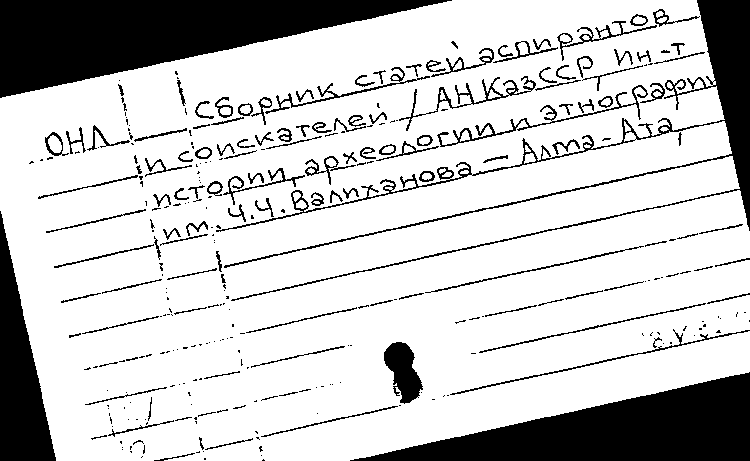 Сборник статей аспирантов
ОНЛ
и соискателей / АН КазССР, Ин-т
истории, археологии и этнографии
им. Ч.Ч. Валиханова — Алма-Ата,